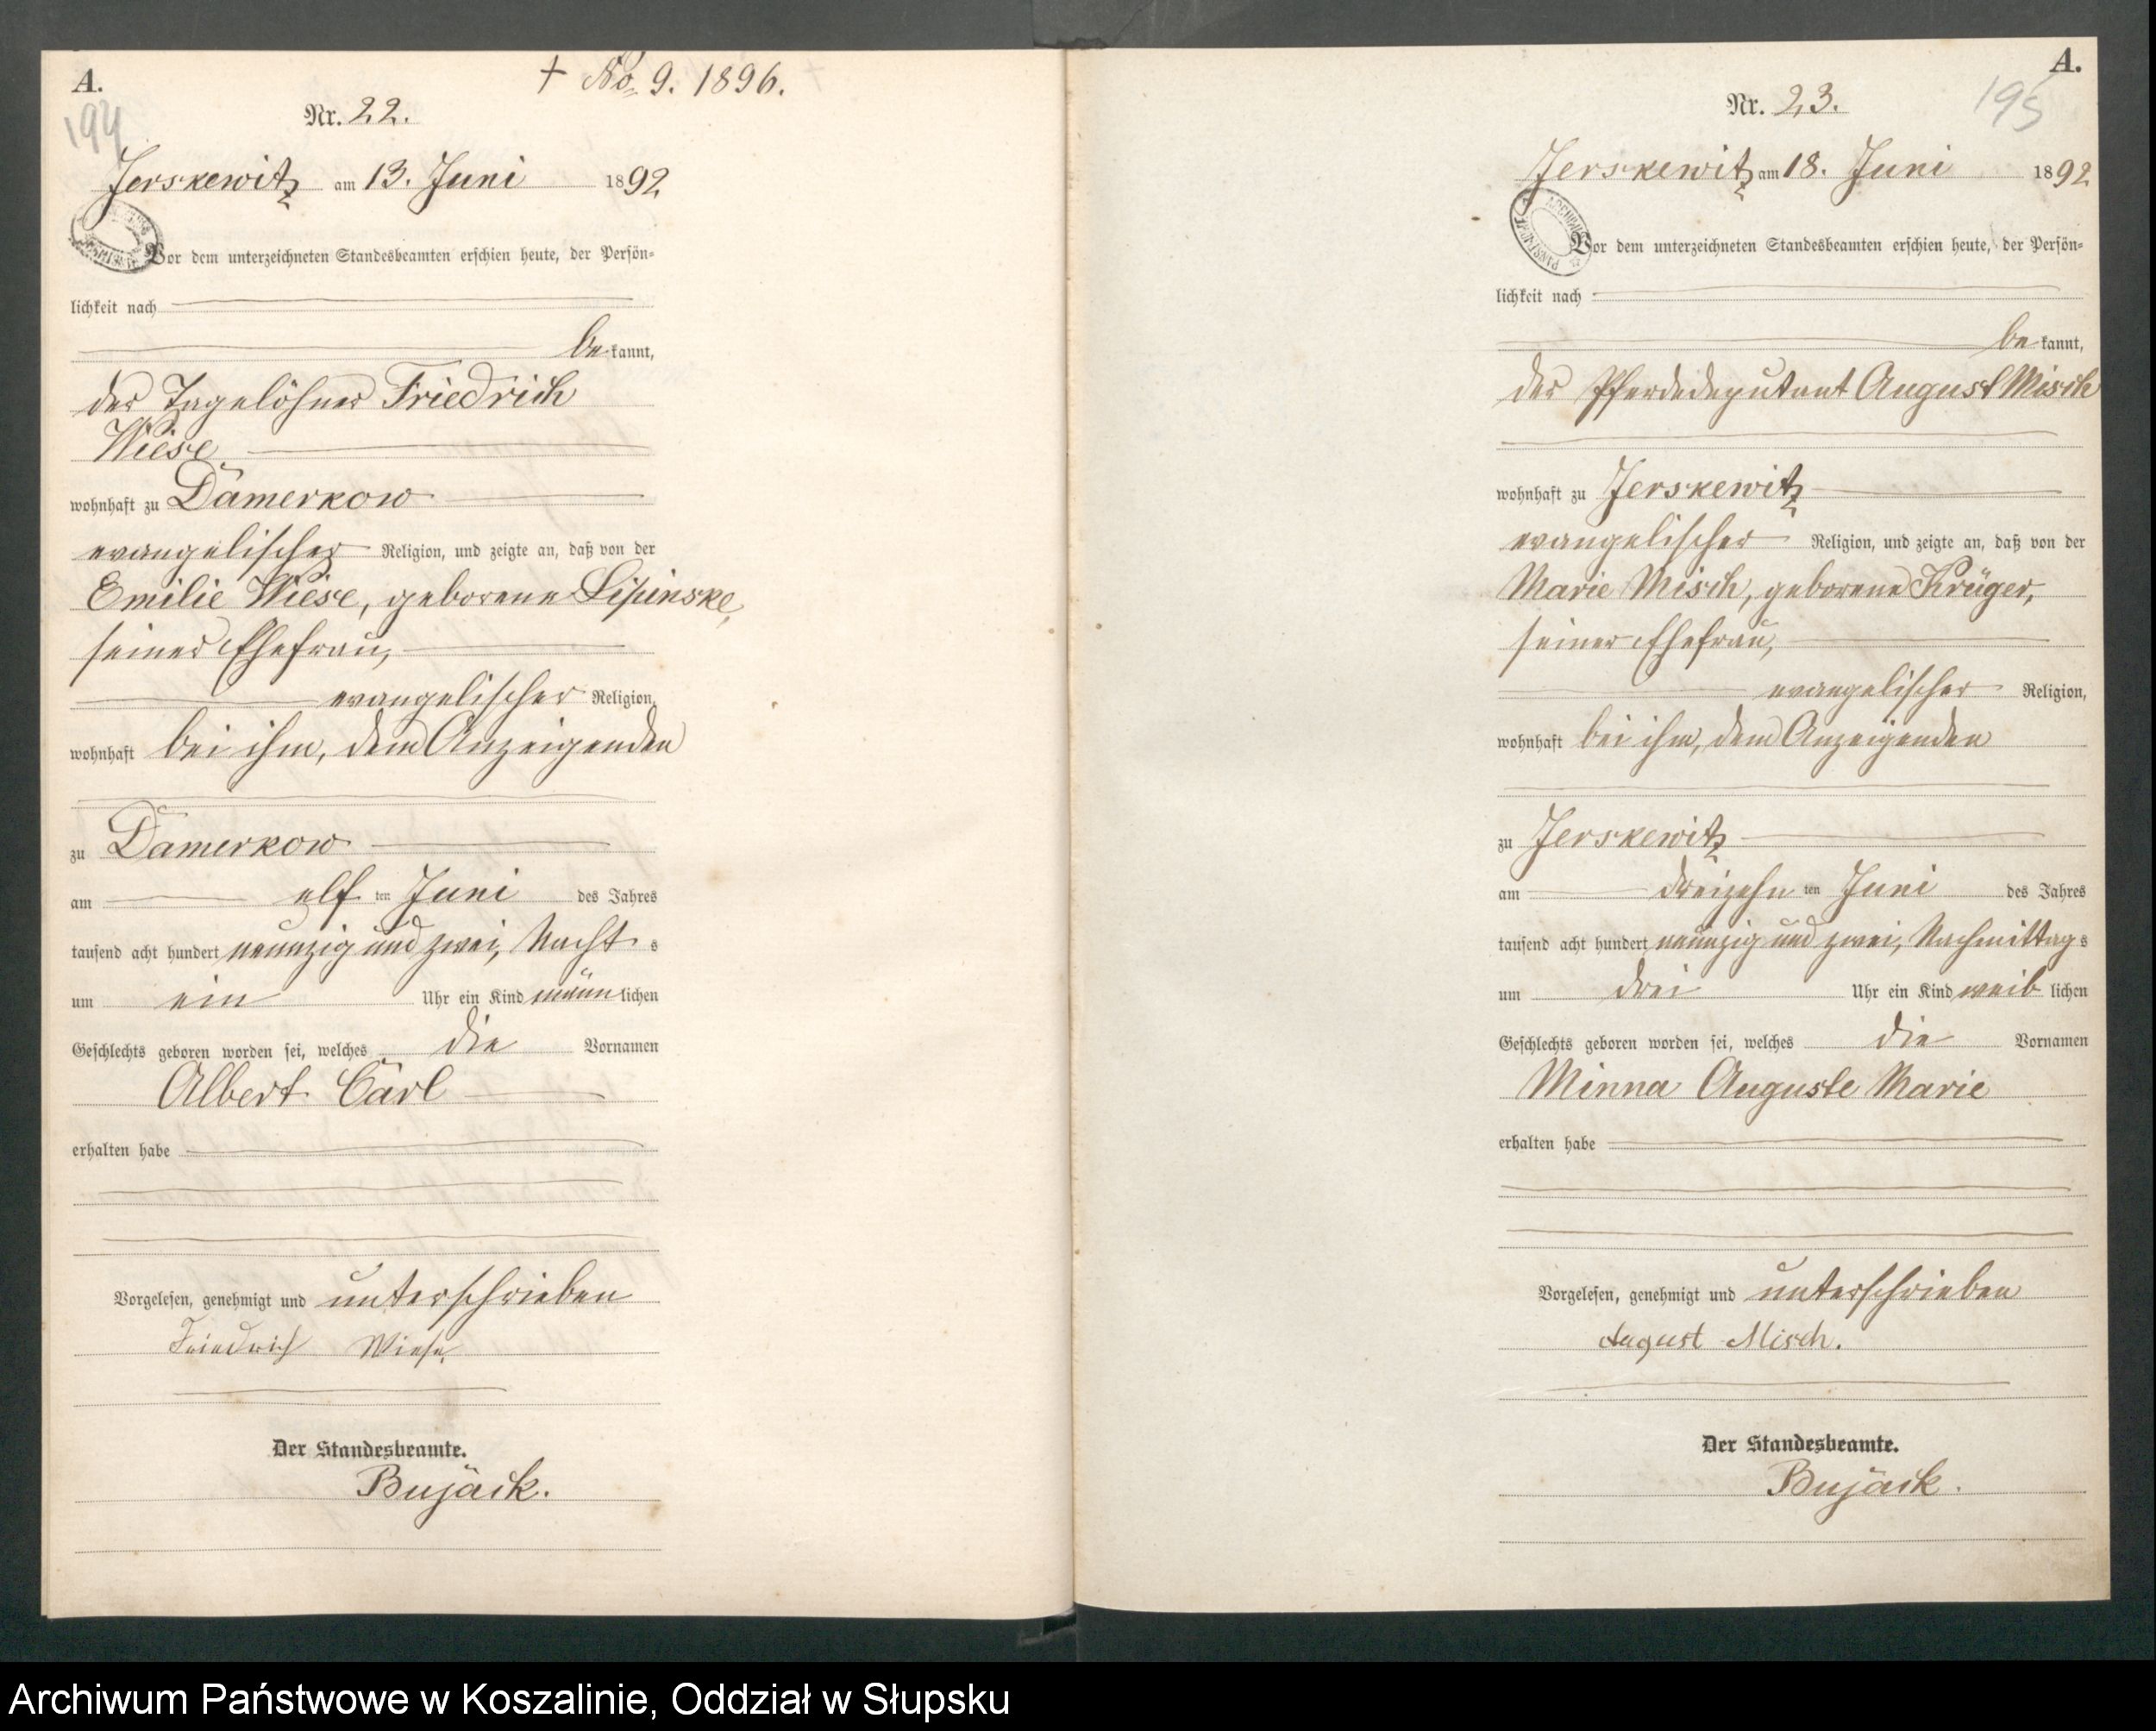 A.
194
+ No. 9. 1896.
Nr. 22.
Jerskewitz am 13. Juni 1892
Vor dem unterzeichneten Standesbeamten erschien heute, der Persön-
lichkeit nach
bekannt,
der Tagelöhner Friedrich
Wiese
wohnhaft zu Damerkow
evangelischer Religion, und zeigte an, daß von der
Emilie Wiese, geborene Lipinske,
seiner Ehefrau,
evangelischer Religion,
wohnhaft bei ihm, dem Anzeigenden
zu Damerkow
am elf ten Juni des Jahres
tausend acht hundert neunzig und zwei, Nachts
um ein Uhr ein Kind männlichen
Geschlechts geboren worden sei, welches die Vornamen
Albert Carl
erhalten habe
Vorgelesen, genehmigt und unterschrieben
Friedrich Wiese
Der Standesbeamte.
Bujack.
A.
195
Nr. 23.
Jerskewitz am 18. Juni 1892
Vor dem unterzeichneten Standesbeamten erschien heute, der Persön-
lichkeit nach
bekannt,
der Pferdedeputant August Misch
wohnhaft zu Jerskewitz
evangelischer Religion, und zeigte an, daß von der
Marie Misch, geborene Krüger,
seiner Ehefrau,
evangelischer Religion,
wohnhaft bei ihm, dem Anzeigenden
zu Jerskewitz
am dreizehn ten Juni des Jahres
tausend acht hundert neunzig und zwei, Nachmittags
um drei Uhr ein Kind weiblichen
Geschlechts geboren worden sei, welches die Vornamen
Minna Auguste Marie
erhalten habe
Vorgelesen, genehmigt und unterschrieben
August Misch.
Der Standesbeamte.
Bujack.
Archiwum Państwowe w Koszalinie, Oddział w Słupsku